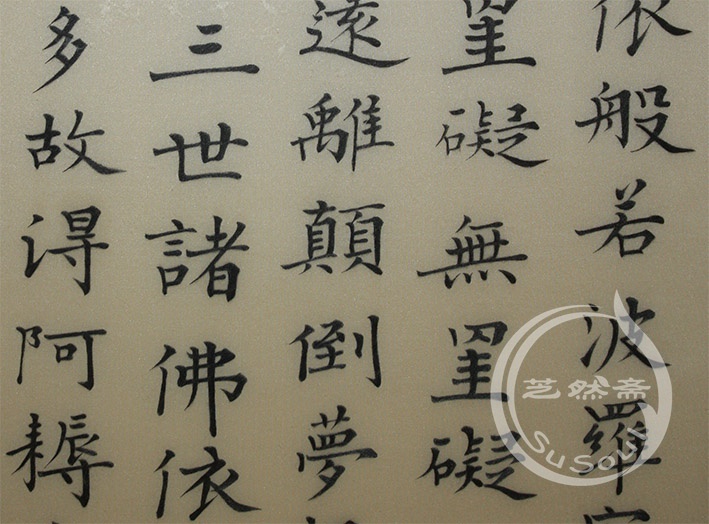 依般若波羅
罣礙無罣礙
遠離顛倒夢
三世諸佛依
多故得阿耨
芝然斋
SuSoul